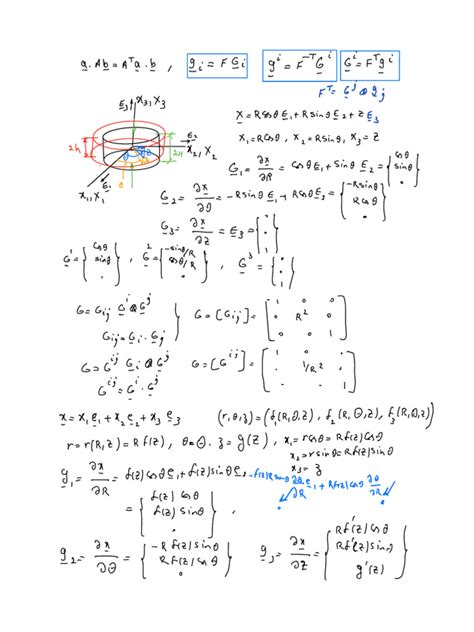 a . A b = A^T a . b , g_i = F G_i g^i = F^{-T} G^i G^i = F^T g^i
F^T = G^j ⊗ g_j
E_3 x_3, X_3
X = R cosθ E_1 + R sinθ E_2 + Z E_3
E_2
x_2, X_2
2h 2H
θ
x_1, X_1 E_1
X_1 = R cosθ, X_2 = R sinθ, X_3 = Z
G_1 = ∂X/∂R = cosθ E_1 + sinθ E_2 = { cosθ sinθ 0 }
G_2 = ∂X/∂Θ = -R sinθ E_1 + R cosθ E_2 = { -R sinθ R cosθ 0 }
G_3 = ∂X/∂Z = E_3 = { 0 0 1 }
G^1 = { cosθ sinθ 0 } , G^2 = { -sinθ/R cosθ/R 0 } , G^3 = { 0 0 1 }
G = G_{ij} G^i ⊗ G^j
G_{ij} = G_i . G_j
G = [G_{ij}] = [ 1 0 0 0 R^2 0 0 0 1 ]
G = G^{ij} G_i ⊗ G_j
G^{ij} = G^i . G^j
G = [G^{ij}] = [ 1 0 0 0 1/R^2 0 0 0 1 ]
x = x_1 e_1 + x_2 e_2 + x_3 e_3 (r, θ, z) = (f_1(R, Θ, Z), f_2(R, Θ, Z), f_3(R, Θ, Z))
r = r(R, Z) = R f(Z), θ = Θ, z = g(Z), x_1 = r cosθ = R f(Z) cosθ
x_2 = r sinθ = R f(Z) sinθ
x_3 = z
g_1 = ∂x/∂R = f(Z) cosθ e_1 + f(Z) sinθ e_2 - f(Z) R sinθ ∂θ/∂R e_1 + R f(Z) cosθ ∂θ/∂R
= { f(Z) cosθ f(Z) sinθ 0 } ,
g_2 = ∂x/∂Θ = { -R f(Z) sinθ R f(Z) cosθ 0 } g_3 = ∂x/∂Z = { R f'(Z) cosθ R f'(Z) sinθ g'(Z) }